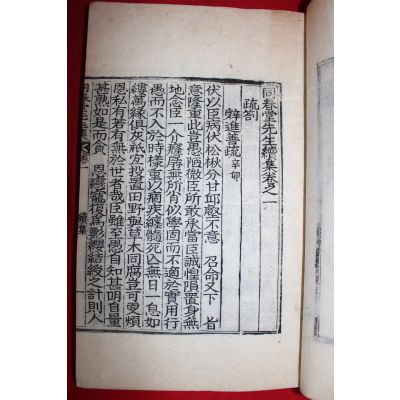 同春堂先生續集卷之一
疏箚
辭進善疏 辛卯
伏以臣病伏松楸分甘邱壑不意 召命又下 旨
意隆重此豈愚陋微臣所敢承當臣誠惶隕置身無
地念臣一介癃孱無所肖似學固而不適於實用行
愚而不入於時樣重以痼疾纏髓死亡無日一息如
縷萬緣俱灰祇宜投置田野與草木同腐豈可更煩
恩私有若有無於世者哉臣雖至愚自知甚明自量
甚熟如是而貪 恩戀寵復爲飄纓結綬之計則人
續集